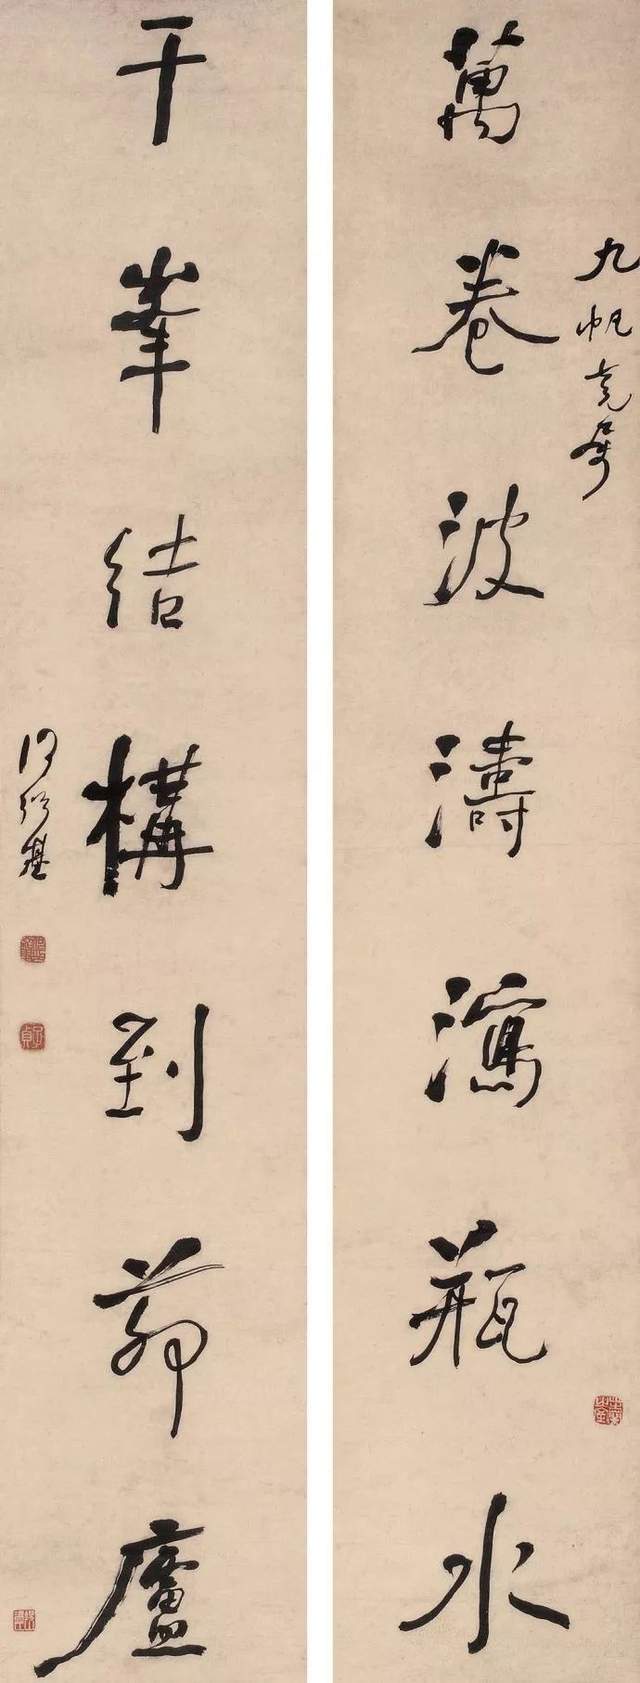 九帆亮弟
萬卷波濤瀉瓶水
千峯結構到茆廬
何紹基